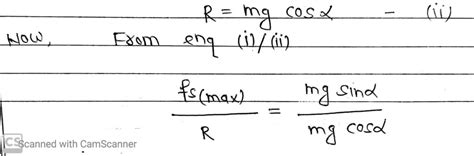 R = mg cosα - (ii)
Now, From enq (i)/(ii)
fs(max)/R = mg sinα/mg cosα
CS Scanned with CamScanner